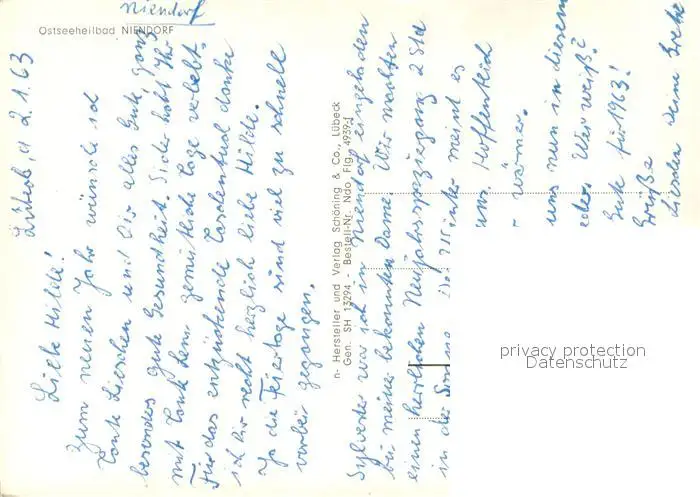 Ostseeheilbad NIENDORF
Niendorf
Lübeck, d 2.1.63
Liebe Hilde!
Zum neuen Jahr wünsche ich
Tante Lieschen und Dir alles Gute, ganz
besonders gute Gesundheit. Sicher habt Ihr
mit Tante Leni gemütliche Tage verlebt.
Für das entzückende Taschentuch danke
ich Dir recht herzlich liebe Hilde.
Ja die Feiertage sind viel zu schnell
vorbei gegangen.
n- Hersteller und Verlag Schöning & Co., Lübeck
Gen. SH 13294 - Bestell-Nr. Ndo. Flg. 4939-1
Sylvester war ich in Niendorf eingeladen
bei meiner bekannten Dame. Wir machten
einen herrlichen Neujahrsspaziergang 2 Std
in der Sonne. Der Winter meint es
uns. Hoffentlich
wärmer.
uns nun in diesem
Wer weiß?
Gute für 1963!
Grüße
Lieschen Deine Grete
privacy protection
Datenschutz